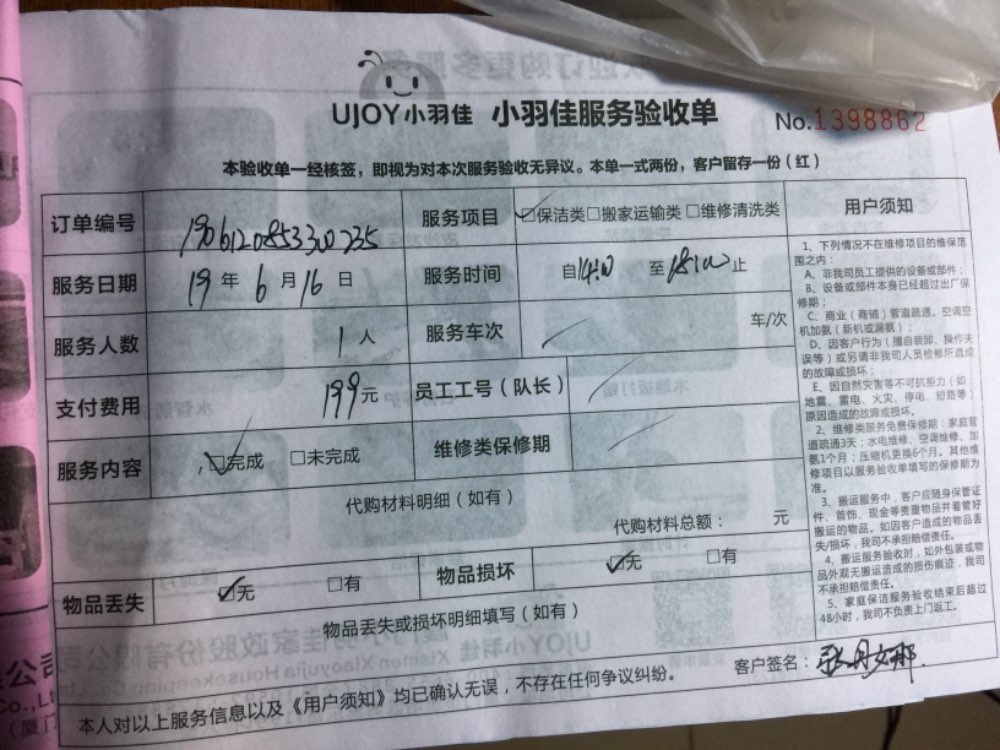 UJOY小羽佳 小羽佳服务验收单
No.1398862
本验收单一经核签，即视为对本次服务验收无异议。本单一式两份，客户留存一份（红）
订单编号 190612085330235 服务项目 ☑保洁类□搬家运输类□维修清洗类
服务日期 19年6月16日 服务时间 自14:00 至18:00止
服务人数 1人 服务车次 车/次
支付费用 199元 员工工号（队长）
服务内容 ☑完成 □未完成 维修类保修期
代购材料明细（如有）
代购材料总额： 元
物品丢失 ☑无 □有 物品损坏 ☑无 □有
物品丢失或损坏明细填写（如有）
客户签名：
本人对以上服务信息以及《用户须知》均已确认无误，不存在任何争议纠纷。
用户须知
1、下列情况不在维修项目的维保范
围之内：
A、非我司员工提供的设备或部件；
B、设备或部件本身已经超过出厂保
修期；
C、商业（商铺）管道疏通、空调空
机加氨（新机或漏氨）；
D、因客户行为（擅自装卸、操作失
误等）或另请非我司人员检修所造成
的故障或损坏；
E、因自然灾害等不可抗拒力（如：
地震、雷电、火灾、停电、短路等）
原因造成的故障或损坏。
2、维修类服务免费保修期：家庭管
道疏通3天；水电维修、空调维修、加
氨1个月；压缩机更换6个月。其他维
修项目以服务验收单填写的保修期为
准。
3、搬运服务中，客户应随身保管证
件、首饰、现金等贵重物品并看管好
搬运的物品。如因客户造成的物品丢
失/损坏，我司不承担赔偿责任。
4、搬运服务验收时，如外包装或物
品外观无搬运造成的损伤痕迹，我司
不承担赔偿责任。
5、家庭保洁服务验收结束后超过
48小时，我司不负责上门返工。